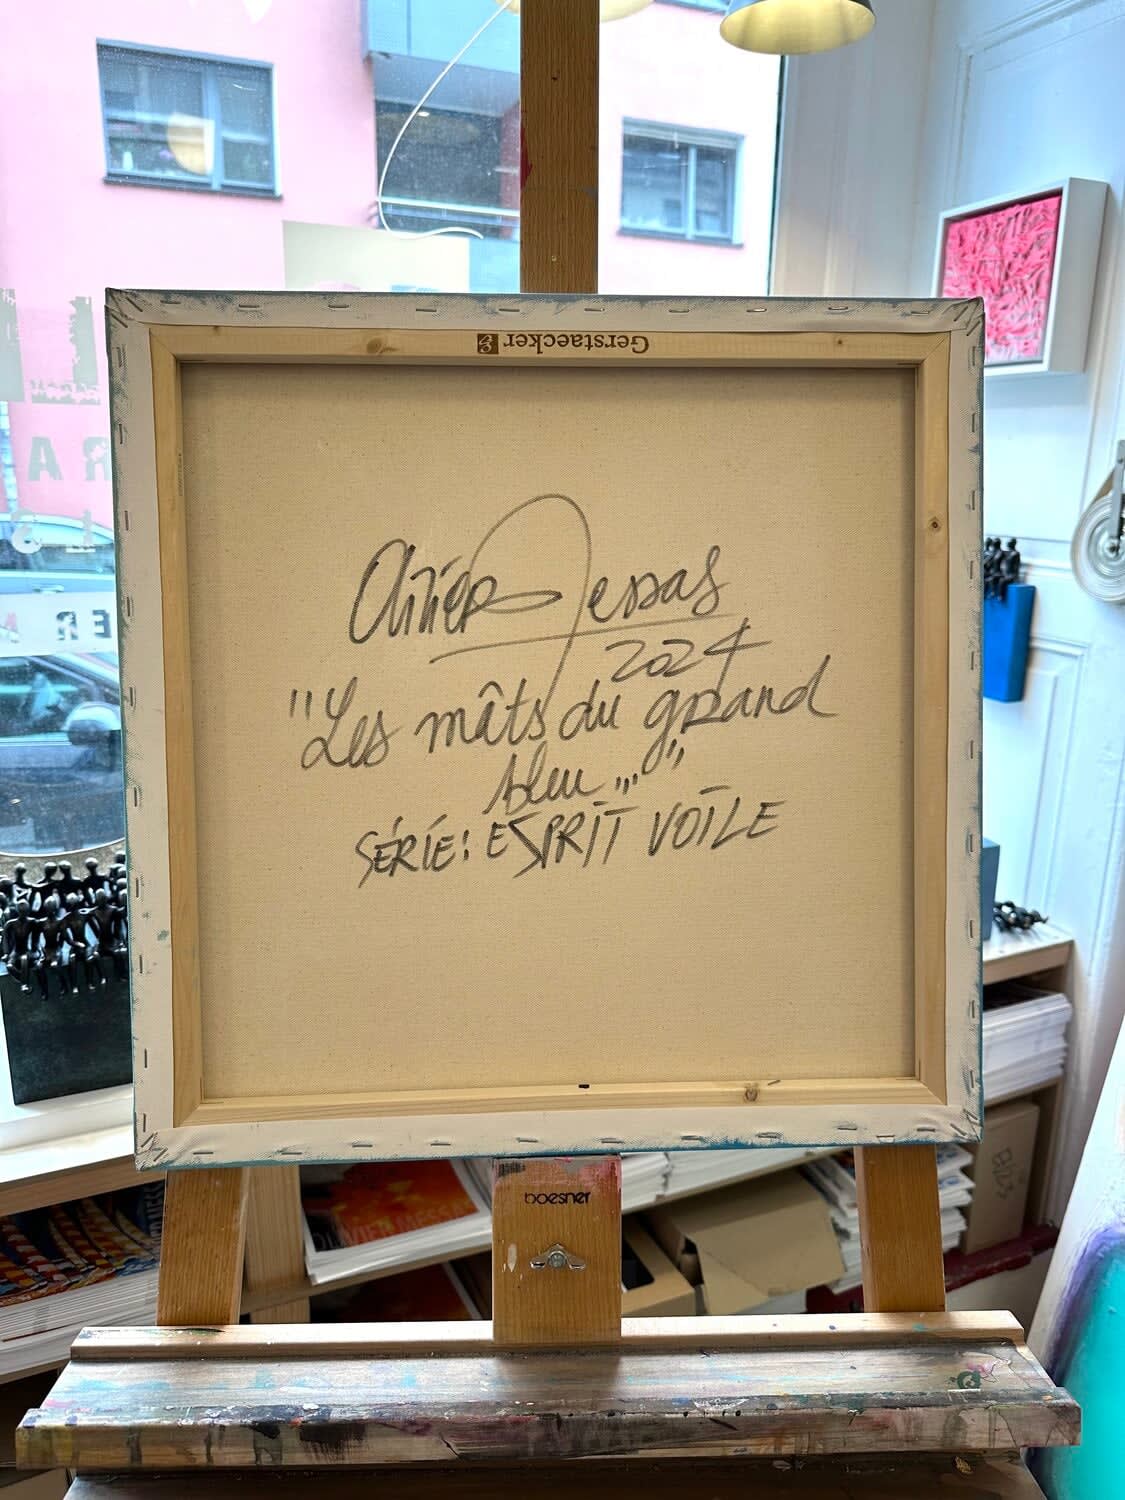 Gerstaecker
Olivier Messas
2024
"Les mâts du grand
bleu..."
SÉRIE: ESPRIT VOILE
boesner